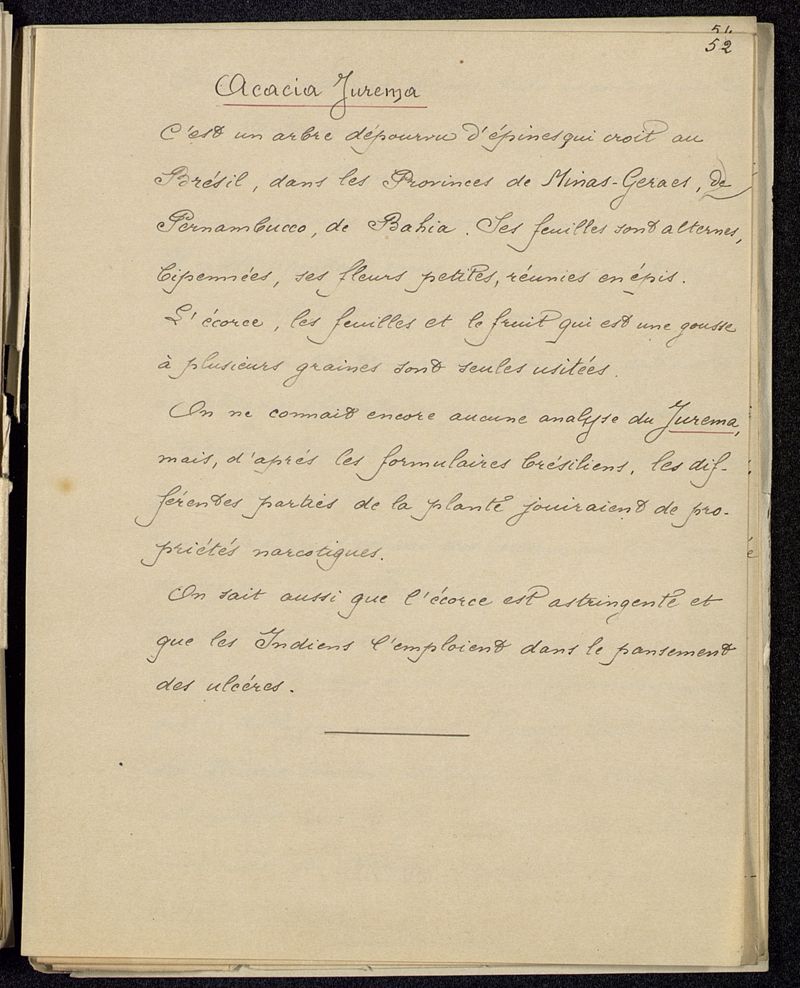 52
Acacia Jurema
C'est un arbre dépourvu d'épines qui croit au
Brésil, dans les Provinces de Minas-Geraes, de
Pernambucco, de Bahia. Ses feuilles sont alternes,
bipennées, ses fleurs petites, réunies en épis.
L'écorce, les feuilles et le fruit qui est une gousse
à plusieurs graines sont seules usitées.
On ne connait encore aucune analyse du Jurema,
mais, d'aprés les formulaires brésiliens, les dif-
férentes parties de la plante jouiraient de pro-
priétés narcotiques.
On sait aussi que l'écorce est astringente et
que les Indiens l'emploient dans le pansement
des ulcéres.